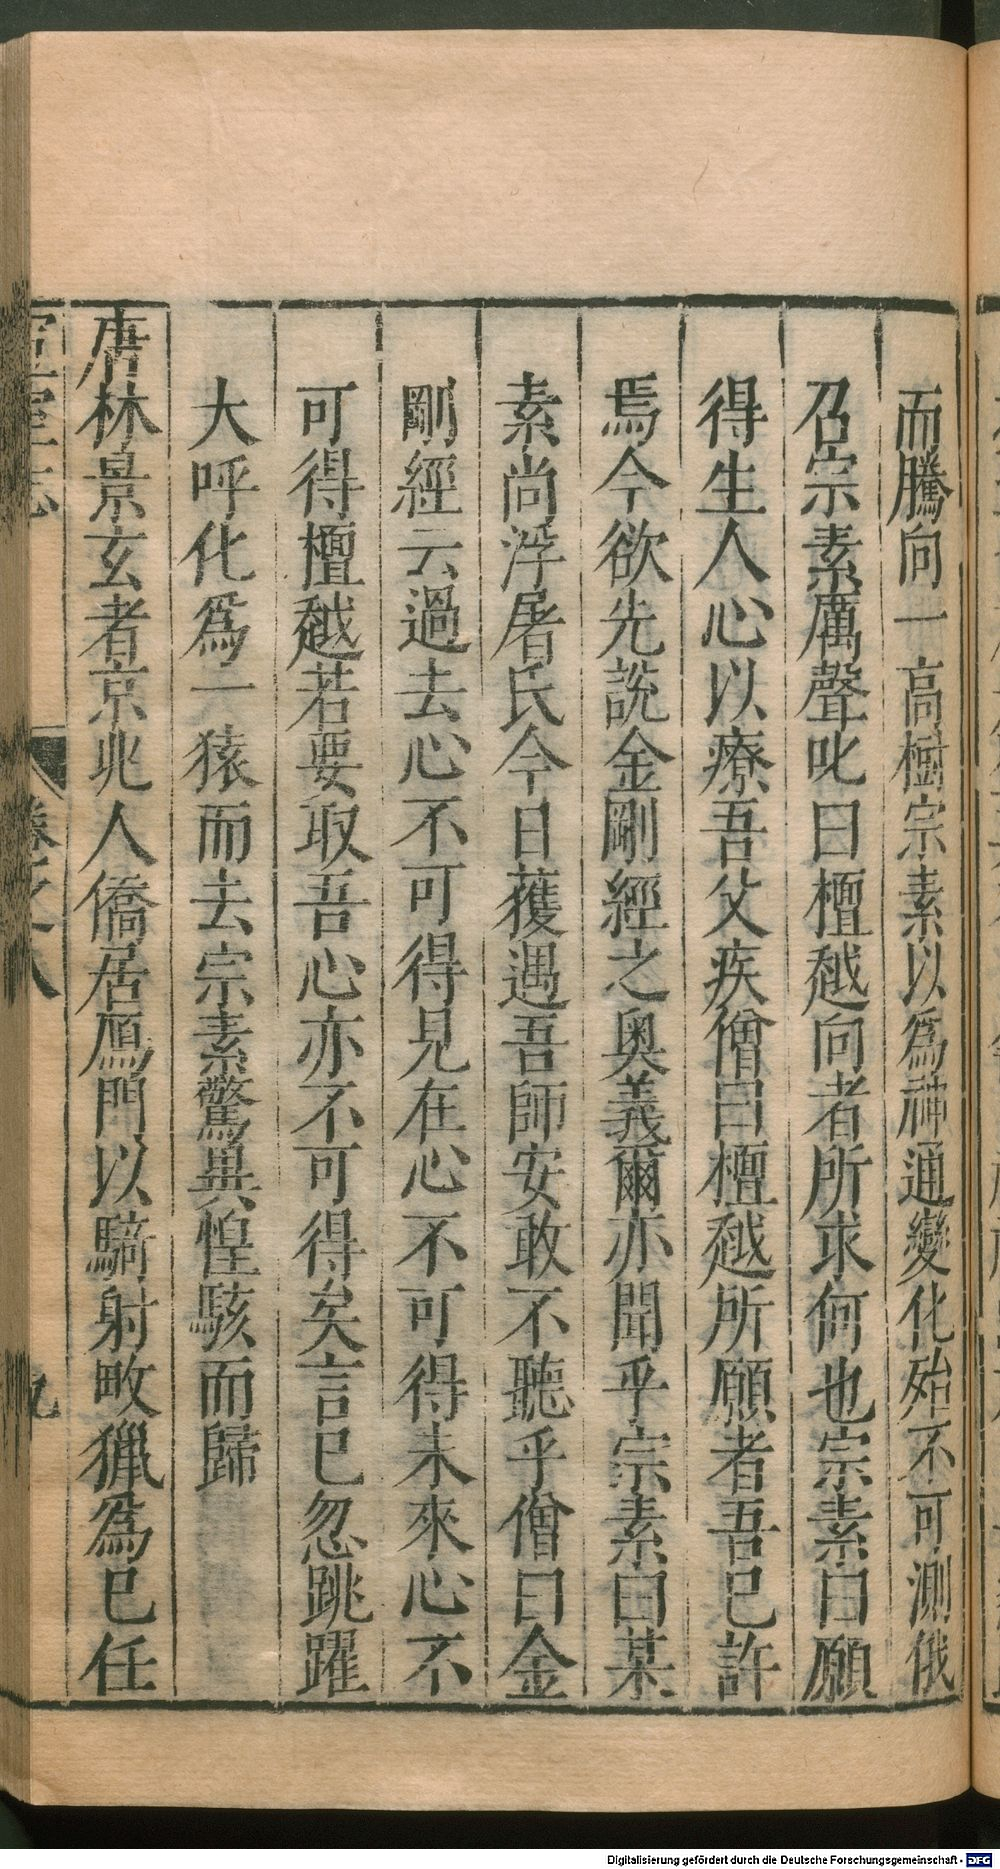 而騰向一高樹宗素以爲神通變化殆不可測俄
召宗素厲聲叱曰檀越向者所求何也宗素曰願
得生人心以療吾父疾僧曰檀越所願者吾已許
焉今欲先說金剛經之奧義爾亦聞乎宗素曰某
素尚浮屠氏今日獲遇吾師安敢不聽乎僧曰金
剛經云過去心不可得見在心不可得未來心不
可得檀越若要取吾心亦不可得矣言已忽跳躍
大呼化爲一猿而去宗素驚異惶駭而歸
唐林景玄者京兆人僑居鴈門以騎射畋獵爲已任
宣室志 卷之八 九
Digitalisierung gefördert durch die Deutsche Forschungsgemeinschaft - DFG